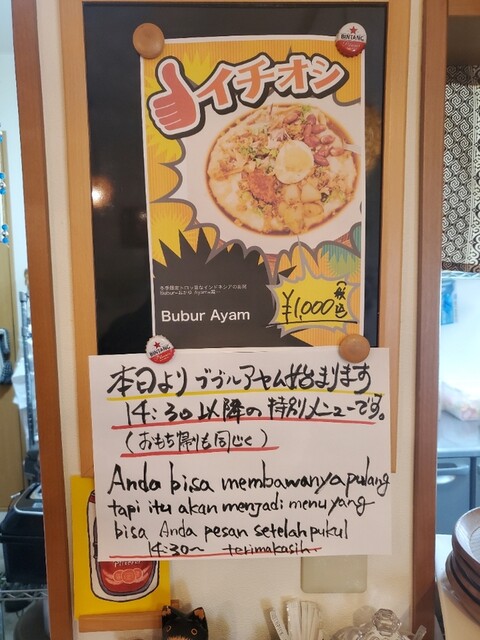 イチオシ
BINTANG
Bubur Ayam
¥1,000
(税込)
BINTANG
本日より ブブルアヤム始まります
14:30以降の特別メニューです。
(おもち帰りも同じく)
Anda bisa membawanya pulang
tapi itu akan menjadi menu yang
bisa Anda pesan setelah pukul
14:30~ terimakasih